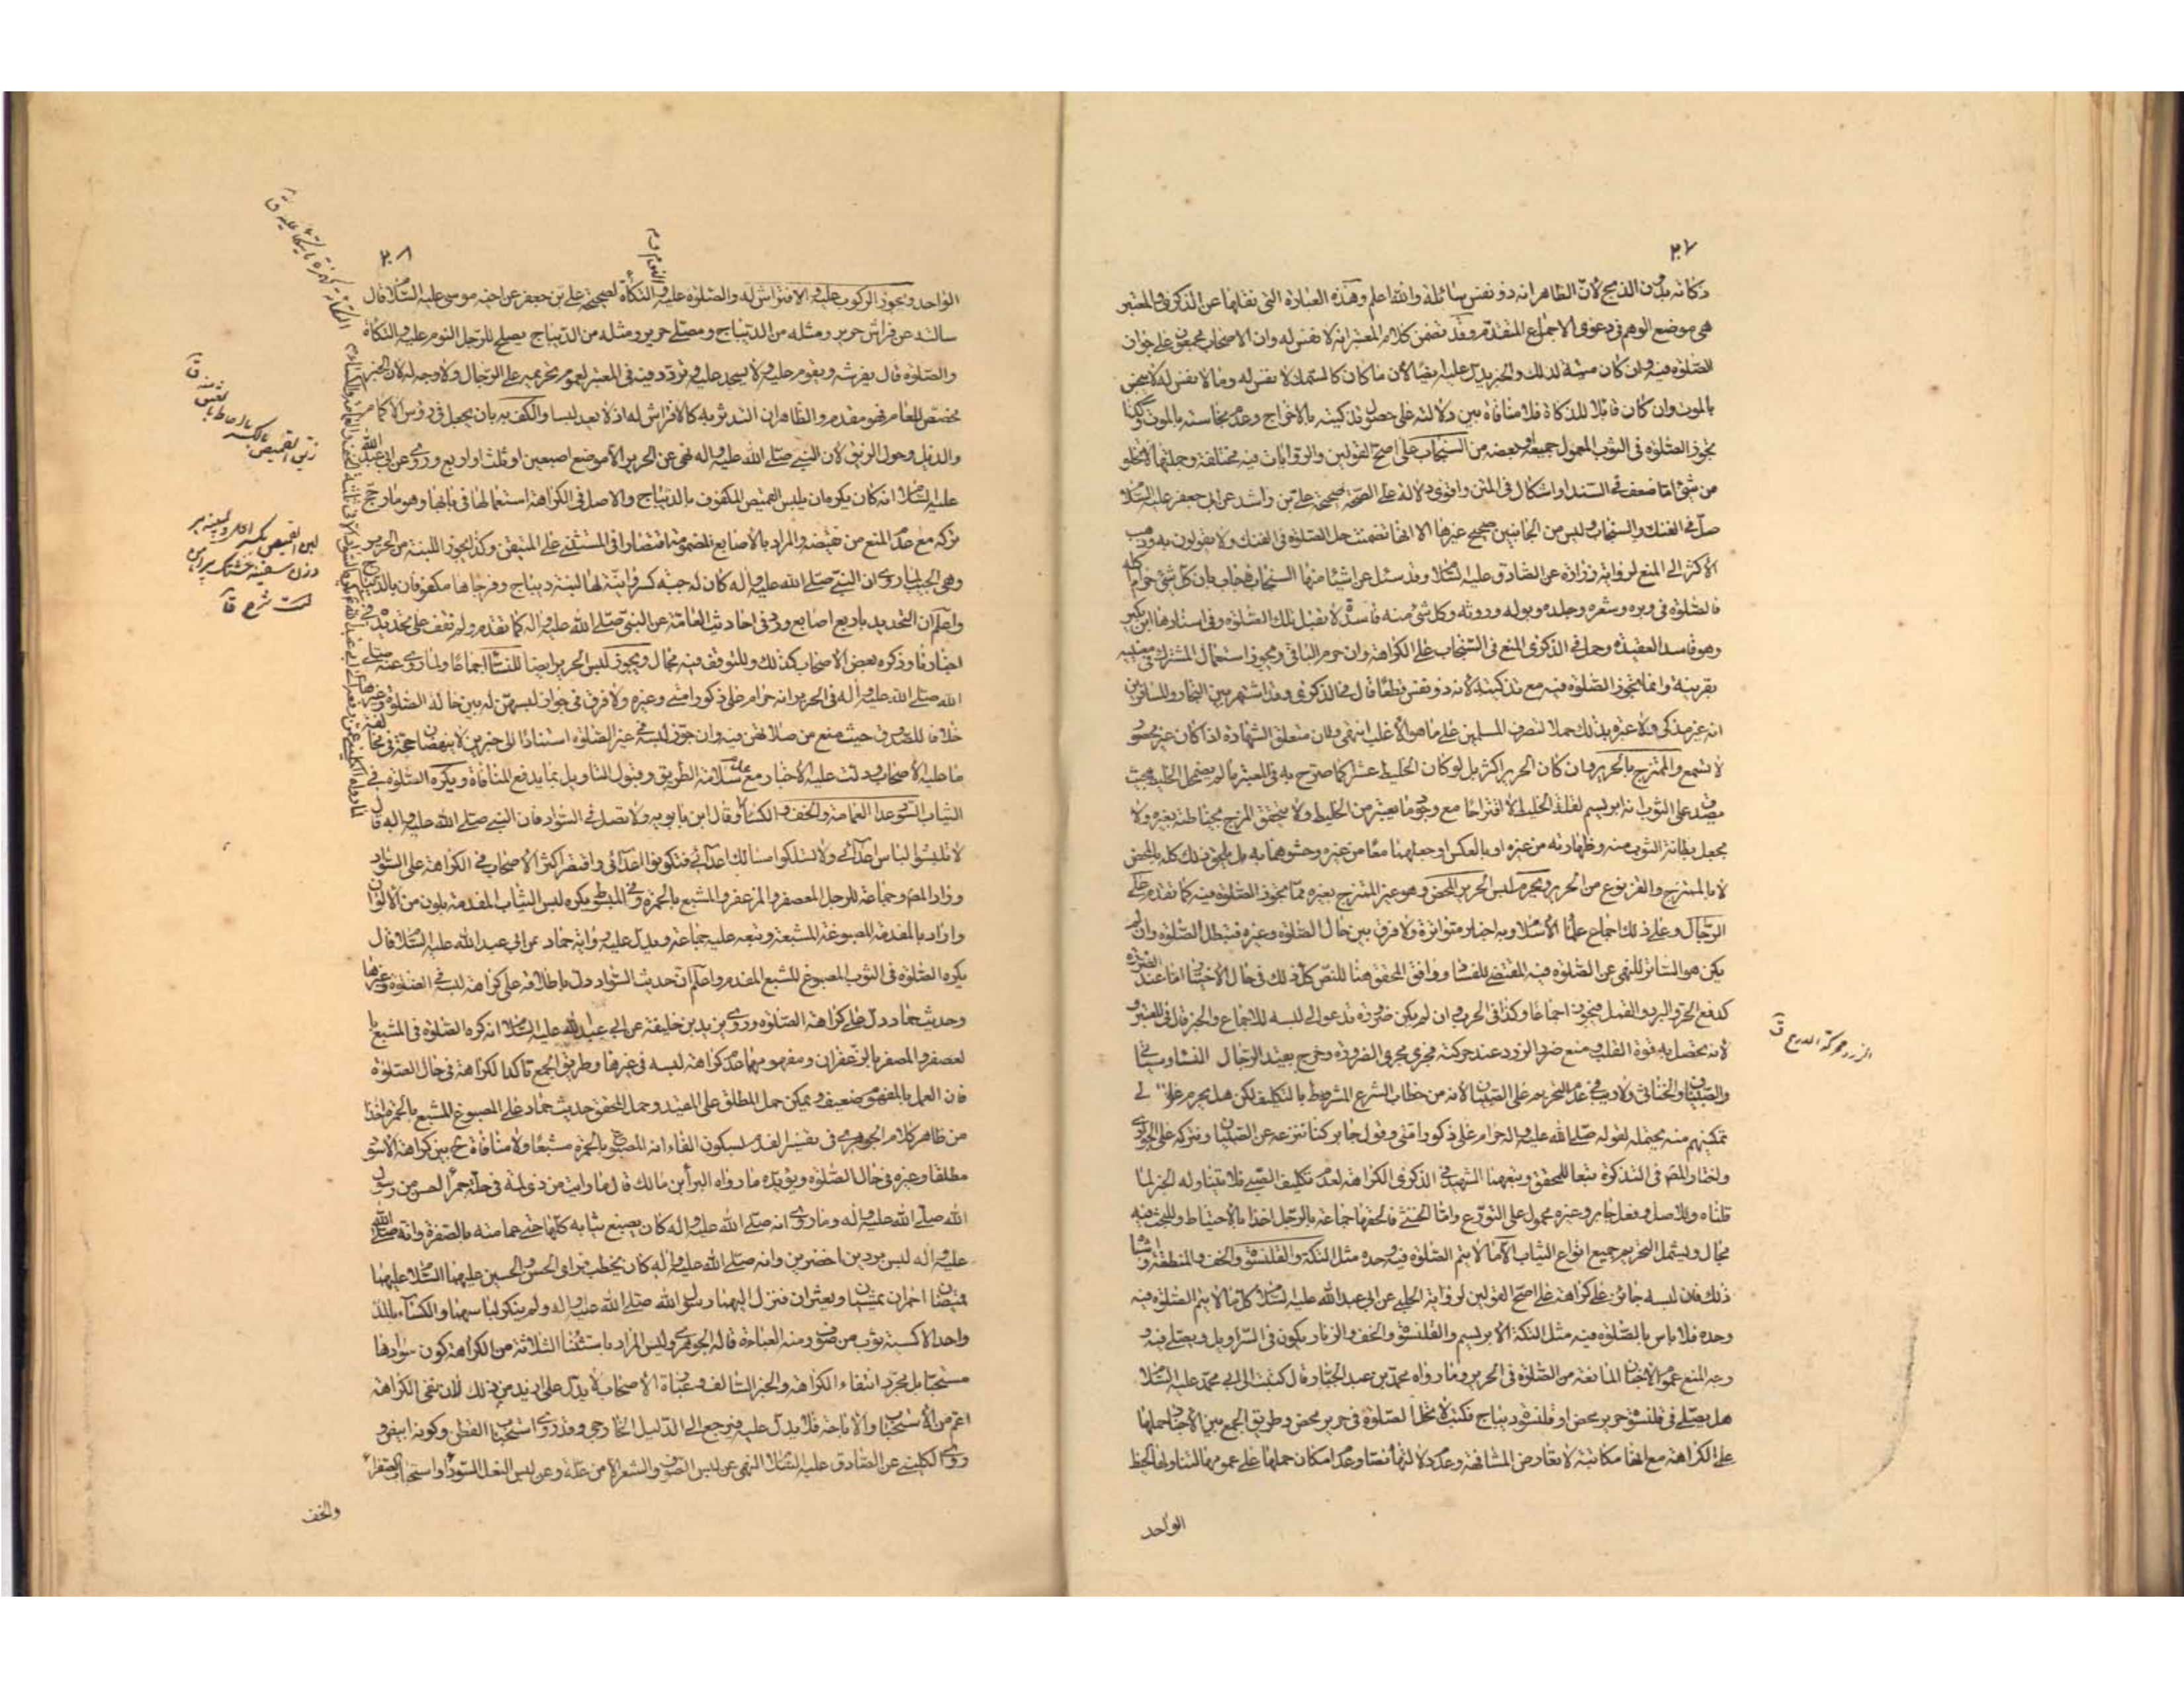 ٢٠٧
ذكاته بدون الذبح لأن الظاهر انه ذو نفس سائلة والله اعلم وهذه العبارة التي نقلها عن الذكرى والمعتبر
هي موضع الوهم في دعوى الاجماع المتقدم وقد تضمن كلام المعتبر انه لا نفس له وان الاصحاب مجمعون على جواز
الصلوة فيه وان كان ميتة لذلك والخبر يدل عليه ايضا لأن ما كان كالسمك لا نفس له وما لا نفس له لا ينجس
بالموت وان كان قابلا للذكاة فلا منافاة بين دلالته على حصول تذكيته بالاخراج وعدم نجاسته بالموت وكذا
تجوز الصلوة في الثوب المعمول جميعه او بعضه من السنجاب على اصح القولين والروايات فيه مختلفة وجلتها لا تخلو
من شئ اما ضعف في السند او اشكال في المتن واقوى دلالة على الصحة صحيحة علي بن راشد عن ابي جعفر عليه السلام
صل في الفنك والسنجاب وليس من الجانبين صحيح غيرها الا انها تضمنت حل الصلوة في الفنك ولا يقولون به وذهب
الاكثر الى المنع لرواية زرارة عن الصادق عليه السلام وقد سئل عن اشيا منها السنجاب فاجاب بان كل شئ حرام اكله
فالصلوة في وبره وشعره وجلده وبوله وروثه وكل شئ منه فاسدة لا تقبل تلك الصلوة وفي اسنادها ابن بكير
وهو فاسد العقيدة وحمل في الذكرى المنع في السنجاب على الكراهة وان حرم الباقي ويجوز استعمال المشترك في معنييه
بقرينة وانما تجوز الصلوة فيه مع تذكيته لانه ذو نفس قطعا قال في الذكرى وقد اشتهر بين التجار والمسافرين
انه غير مذكى ولا عبرة بذلك حملا لتصرف المسلمين على ما هو الاغلب انتهى ولان متعلق الشهادة اذا كان غير محصور
لا تسمع والممتزج بالحرير وان كان الحرير اكثر بل لو كان الخليط عشرا كما صرح به في المعتبر ما لم يضمحل الخليط بحيث
يصدق على الثوب انه ابريسم لقلة الخليط لا اقتراحا مع وجود ما يعتبر من الخليط ولا يتحقق المزج بخياطته بغيره ولا
بجعل بطانة الثوب منه وظهارته من غيره او بالعكس او جعلهما معا من غيره وحشوهما به بل ذلك كله بالمحض
لا بالممتزج والقز نوع من الحرير ويحرم لبس الحرير المحض وهو غير الممتزج بغيره مما يجوز الصلوة فيه كما تقدم على
الرجال وعلى ذلك اجماع علماء الاسلام وبه اخبار متواترة ولا فرق بين حال الصلوة وغيره فتبطل الصلوة وان لم
يكن هو الساتر للنهي عن الصلوة فيه المقتضي للفساد ووافق المحقق هنا للنص كل ذلك في حال الاختيار اما عند الضرورة
كدفع الحر والبرد والقمل فيجوز اجماعا وكذا في الحرب وان لم يكن ضرورة تدعو الى لبسه للاجماع والخبر قال في المعتبر و
لانه يحصل به قوة القلب ومنع ضرر الزرد عند حركته فجرى مجرى الضرورة وخرج بقيد الرجال النساء وسياتي
والصبيان والخناثى ولا ريب في عدم التحريم على الصبيان لانه من خطاب الشرع المشروط بالتكليف لكن هل يحرم على الولي
تمكينهم منه يحتمله لقوله صلى الله عليه واله حرام على ذكور امتي وقول جابر كنا ننزعه عن الصبيان ونتركه على الجواري
واختار المصـ في التذكرة تبعا للمحقق وتبعهما الشهيد في الذكرى الكراهة لعدم تكليف الصبي فلا يتناوله الخبر لما
قلناه وللاصل وفعل جابر وغيره محمول على التورع واما الخنثى فالحقها جماعة بالرجل اخذا بالاحتياط وللبحث فيه
مجال ويشمل التحريم جميع انواع الثياب الا ما لا يتم الصلوة فيه وحده مثل التكة والقلنسوة والخف والمنطقة واشباه
ذلك فان لبسه جائز على كراهة على اصح القولين لرواية الحلبي عن ابي عبد الله عليه السلام كل ما لا يتم الصلوة فيه
وحده فلا باس بالصلوة فيه مثل التكة الابريسم والقلنسوة والخف والزنار يكون في السراويل ويصلى فيه و
وجه المنع عموم الاخبار المانعة من الصلوة في الحرير وما رواه محمد بن عبد الجبار قال كتبت الى ابي محمد عليه السلام
هل يصلى في قلنسوة حرير محض او قلنسوة ديباج فكتب لا تحل الصلوة في حرير محض وطريق الجمع بين الاخبار حملها
على الكراهة مع انها مكاتبة لا تعارض المشافهة وعدم دلالتها نصا وعدم امكان حملها على عمومها لتناولها الخيط
الواحد
الزرد محركة الدرع ق
٢٠٨
الواحد ويجوز الركوب عليه والافتراش له والصلوة عليه والتكأة لصحيحة علي بن جعفر عن اخيه موسى عليه السلام قال
سالته عن فراش حرير ومثله من الديباج ومصلى حرير ومثله من الديباج يصلح للرجل النوم عليه والتكأة
والصلوة قال يفرشه ويقوم عليه ولا يسجد عليه وتردد فيه في المعتبر لعموم تحريمه على الرجال ولا وجه له لان الخبر
مخصص للعام فهو مقدم والظاهر ان التدثر به كالافتراش له اذ لا يعد لبسا والكف به بان يجعل في رؤس الاكمام
والذيل وحول الزيق لان النبي صلى الله عليه واله نهى عن الحرير الا موضع اصبعين او ثلث او اربع وروى عن ابي عبد الله
عليه السلام انه كان يكره ان يلبس القميص المكفوف بالديباج والاصل في الكراهة استعمالها في بابها وهو ما رجح
تركه مع عدم المنع من نقيضه والمراد بالاصابع المضمومة اقتصارا في المستثنى على المتيقن وكذا يجوز اللبنة من الحرير
وهي الجيب لما روى ان النبي صلى الله عليه واله كان له جبة كسروانية لها لبنة ديباج وفرجاها مكفوفان بالديباج
واعلم ان التحديد باربع اصابع ورد في احاديث العامة عن النبي صلى الله عليه واله كما تقدم ولم نقف على تحديده في
اخبارنا وذكره بعض الاصحاب كذلك وللتوقف فيه مجال ويجوز لبس الحرير ايضا للنساء اجماعا ولما روى عنه صلى
الله صلى الله عليه واله في الحرير انه حرام على ذكور امتي وغيره ولا فرق في جواز لبسهن له بين حالة الصلوة وغيرها
خلافا للصدوق حيث منع من صلاتهن فيه وان جوز لبسه في غير الصلوة استنادا الى خبرين لا ينهضان حجة في مخالفة
ما عليه الاصحاب ودلت عليه الاخبار مع عدم سلامة الطريق وقبول التاويل بما يدفع المنافاة ويكره الصلوة في
الثياب السود عدا العمامة والخف والكساء وقال ابن بابويه ولا تصل في السواد فان النبي صلى الله عليه واله قال
لا تلبسوا لباس اعدائي ولا تسلكوا مسالك اعدائي فتكونوا اعدائي واقتصر اكثر الاصحاب في الكراهة على السواد
وزاد المصـ وجماعة للرجل المعصفر والمزعفر والمشبع بالحمرة وفي المبسوط يكره لبس الثياب المفدمة بلون من الالوان
واراد بالمفدمة المصبوغة المشبعة وتبعه عليه جماعة ويدل عليه رواية حماد عن ابي عبد الله عليه السلام قال
يكره الصلوة في الثوب المصبوغ المشبع المفدم واعلم ان حديث السواد دل باطلاقه على كراهة لبسه في الصلوة وغيرها
وحديث حماد دل على كراهة الصلوة وروى يزيد بن خليفة عن ابي عبد الله عليه السلام انه كره الصلوة في المشبع با
لعصفر والمصفر بالزعفران ومفهومهما عدم كراهة لبسه في غيرها وطريق الجمع تاكد الكراهة في حال الصلوة
فان العمل بالمفهوم ضعيف ويمكن حمل المطلق على المقيد وحمل المحقق حديث حماد على المصبوغ المشبع بالحمرة اخذا
من ظاهر كلام الجوهري في تفسير الفدم بسكون الفاء انه المصبوغ بالحمرة مشبعا ولا منافاة ح بين كراهة الاسود
مطلقا وغيره في حال الصلوة ويؤيده ما رواه البرأ بن مالك قال ما رايت من ذي لمة في حلة حمرأ احسن من رسول
الله صلى الله عليه واله وما روى انه صلى الله عليه واله كان يصبغ ثيابه كلها حتى عمامته بالصفرة وانه صلى الله
عليه واله لبس بردين اخضرين وانه صلى الله عليه واله كان يخطب فراى الحسن والحسين عليهما السلام عليهما
قميصان احمران يمشيان ويعثران فنزل اليهما رسول الله صلى الله عليه واله ولم ينكر لباسهما والكساء بالمد
واحد الاكسية ثوب من صوف ومنه العباءة قاله الجوهري وليس المراد باستثناء الثلاثة من الكراهة كون سوادها
مستحبا بل مجرد انتفاء الكراهة والخبر السالف وعبارة الاصحاب لا يدل على ازيد من ذلك لان نفي الكراهة
اعم من الاستحباب والاباحة فلا يدل عليه فيرجع الى الدليل الخارجي وقد روى استحباب القطن وكونه ابيض و
روى الكليني عن الصادق عليه السلام النهي عن لبس الصوف والشعر الا من علة وعن لبس النعل السودأ واستحباب الصفرأ
والخف
زيق القميص بالكسر ما احاط بالعنق منه ق